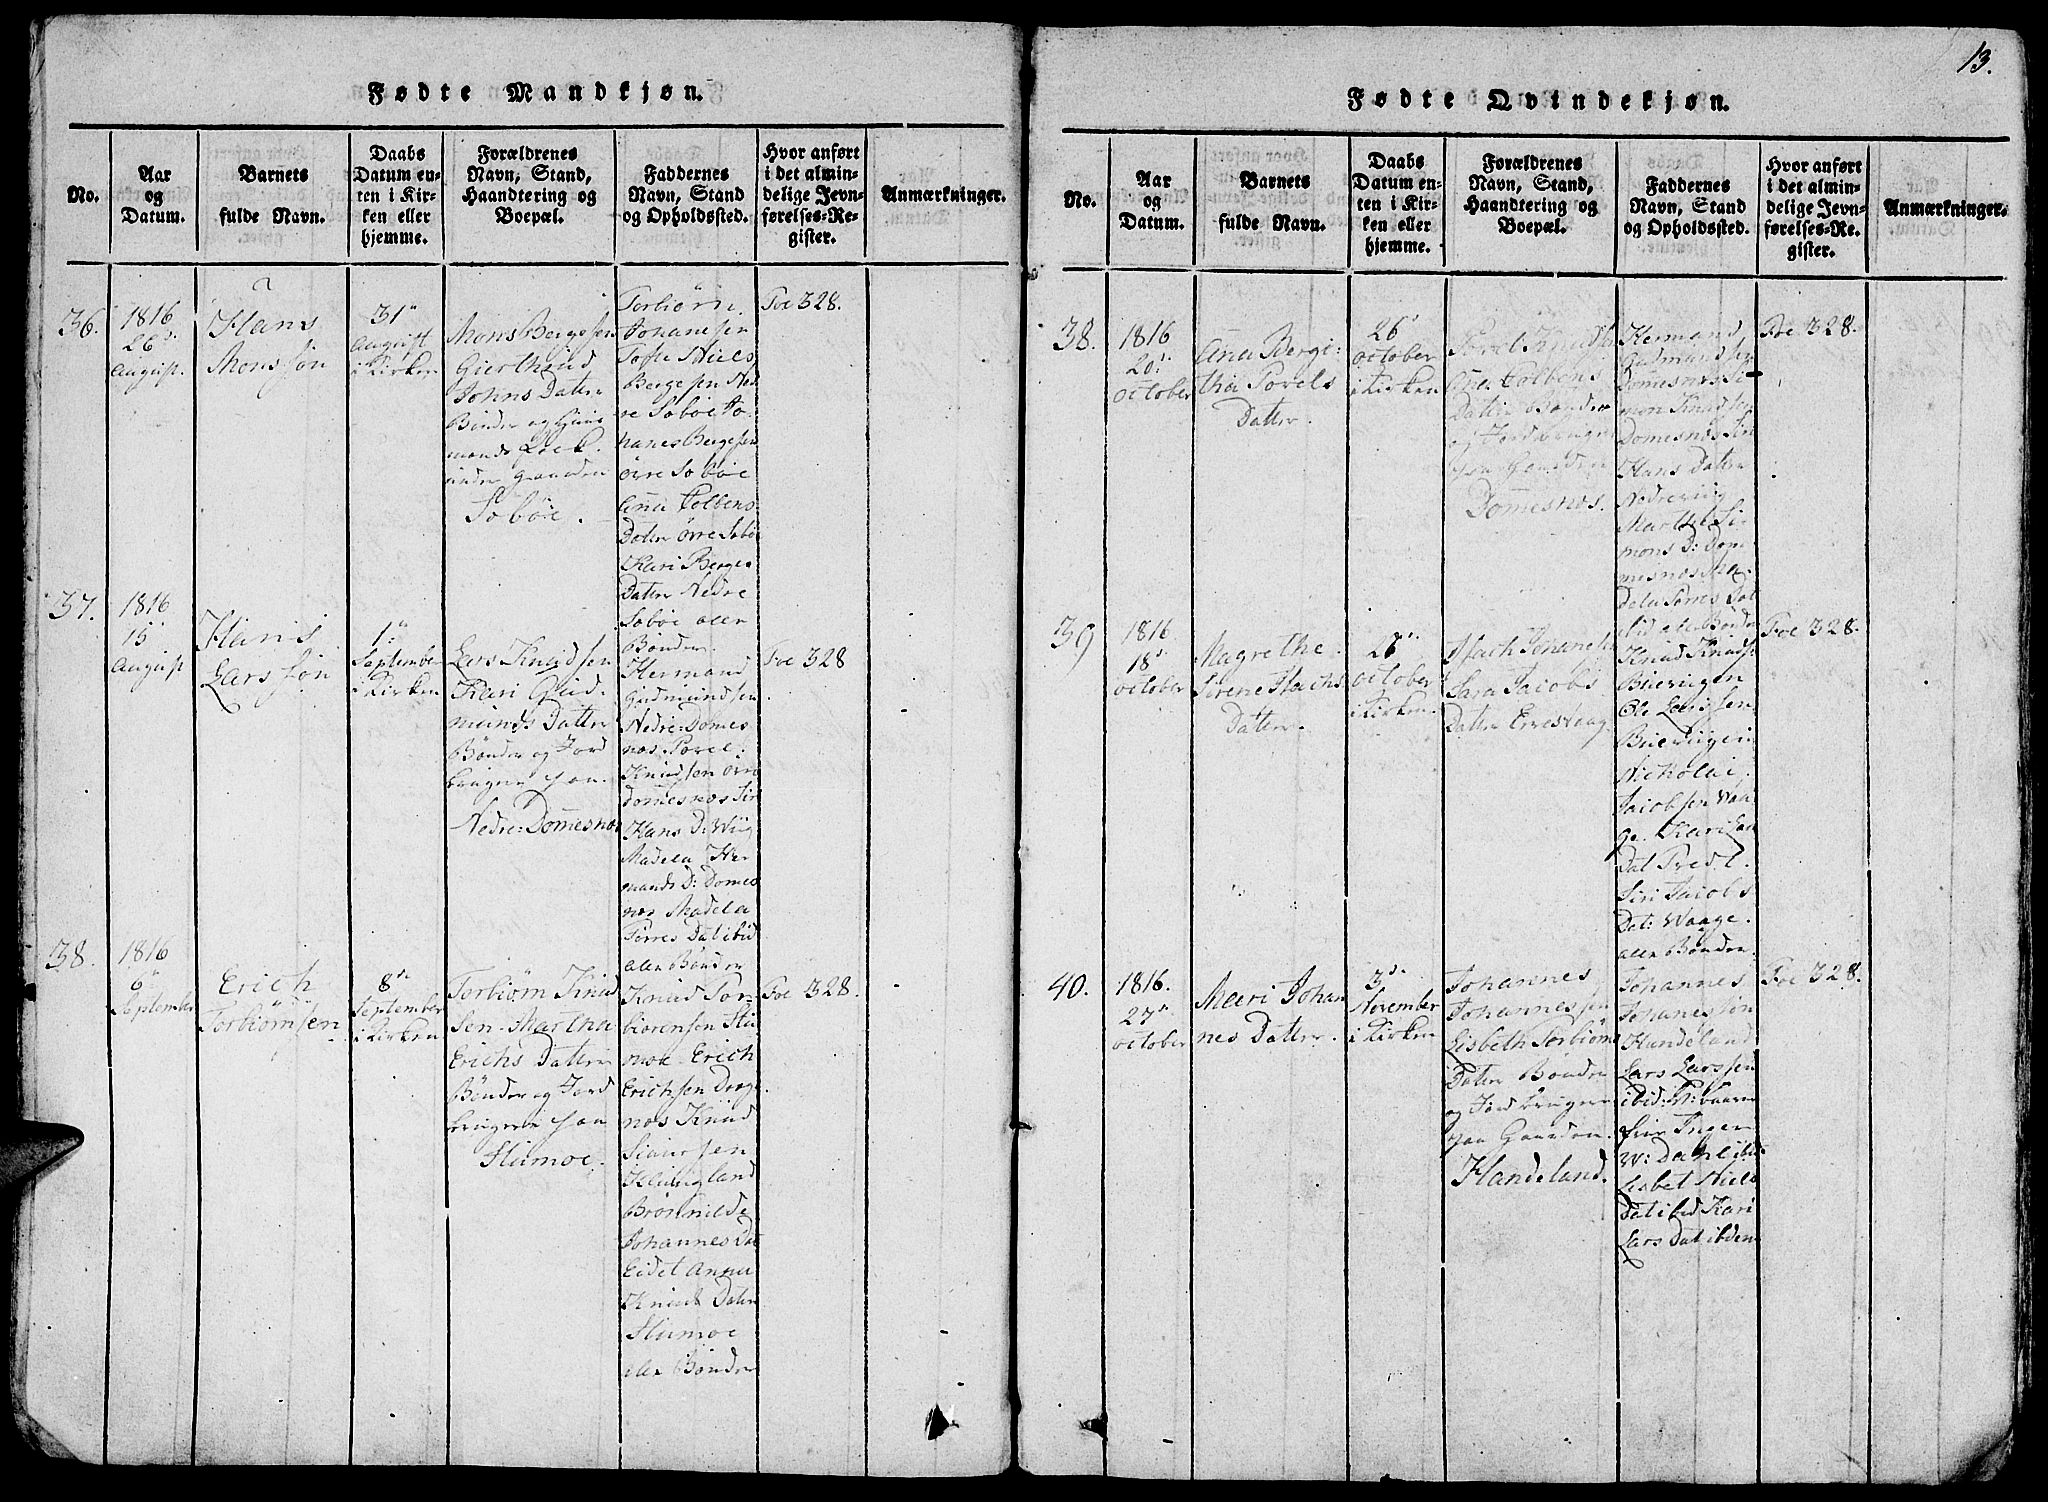 13.
Fødte Mandkjøn.
No.
Aar
og
Datum.
Barnets
fulde Navn.
Daabs
Datum en-
ten i Kir-
ken eller
hjemme.
Forældrenes
Navn, Stand,
Haandtering og
Boepæl.
Faddernes
Navn, Stand
og Opholdssted.
Hvor anført
i det almin-
delige Jevn-
førelses-Re-
gister.
Anmærkninger.
36.
1816
26
August.
Hans
Monssøn
31
August
i Kirken
Mons Bergessen
Gierthrud
Johns Datter
Bønder og Huus
mands Folk
under gaarden
Sobøe.
Torbiørn
Johanesen
Tofte Niels
Bergesen Ned
re Sobøe Jo
hanes Bergesen
övre Sobøe
Ana Colbens
Datter övre Sobö
Kari Berges
Datter Nedre
Sobøe aller
Bønder.
Foe 328.
37.
1816
15
August
Hans
Larssøn
1
September
i Kirken
Lars Knudsen
Kari Gud-
munds Datter
Bønder og Jord
brugere paa
Nedre: Domesnos
Hermand
Gudmundsen
Nedre: Domes
nos. Porel:
Knudsen övre
Domesnos Siri
Hans D: Wiig
Madela Her
mands D: Domes
nos Madela
Torres Dat ibid
aller Bønder
Foe 328
38.
1816
6
September
Erich
Torbiörnsen
8
September
i Kirken
Torbiørn Knud
sen Martha
Erichs Datter
Bønder og Jord
brugere paa
Humoe.
Knud Tor-
biorensen Hu
moe Erich
Erichsen Droge
nos Knud
Siursen
Klungland
Brönnilde
Johannes Dat
Eidet Anna
Knuds Datter
Humoe
aller Bønder
Foe 328.
Fødte Qvindekjøn.
No.
Aar
og
Datum.
Barnets
fulde Navn.
Daabs
Datum en-
ten i Kir-
ken eller
hjemme.
Forældrenes
Navn, Stand,
Haandtering og
Boepæl.
Faddernes
Navn, Stand
og Opholdssted.
Hvor anført
i det almin-
delige Jevn-
førelses-Re-
gister.
Anmærkninger.
38.
1816
20
October
Ana Bergi-
tha Porels
Datter.
26
October
i Kirken
Porel Knuds
Ane Colbens
Datter Bønder
og Jordbrugere
paa Gaarden
Domesnos.
Hermand
Gudmandsen
Domesnos Si
mon Knudsen
Domesnos Siri
Hans Datter
Nedreviig
Marthe Si-
mons D: Dom
mesnos Ma
dela Torres Dat
ibid aller Bønder
Foe 328.
39
1816
18
October
Magrethe
Sirene Isachs
Datter.
26
October
i Kirken.
Isach Johanesen
Sara Jacobs
Datter Ervesvaag
Knud Knuds
Buevingen
Ole Larssen
Buevingen
Nicholai
Jacobsen Waa
ge. Kari
Dat
Siri Jacobs
Dat: Waage.
aller Bønder.
Foe 328.
40.
1816.
27
October
Maari Johan
nes Datter.
3
November
i Kirken
Johannes
Johannessen
Lisbeth Torbiörns
Datter Bønder
og Jordbrugere
paa Gaarden
Handeland.
Johannes
Johanessön
Handeland
Lars Larssen
ibid:
Inger
W: Dahl ibid
Lisbet Niels
Dat ibid Kari
Lars Dat ibdem
Foe 328.